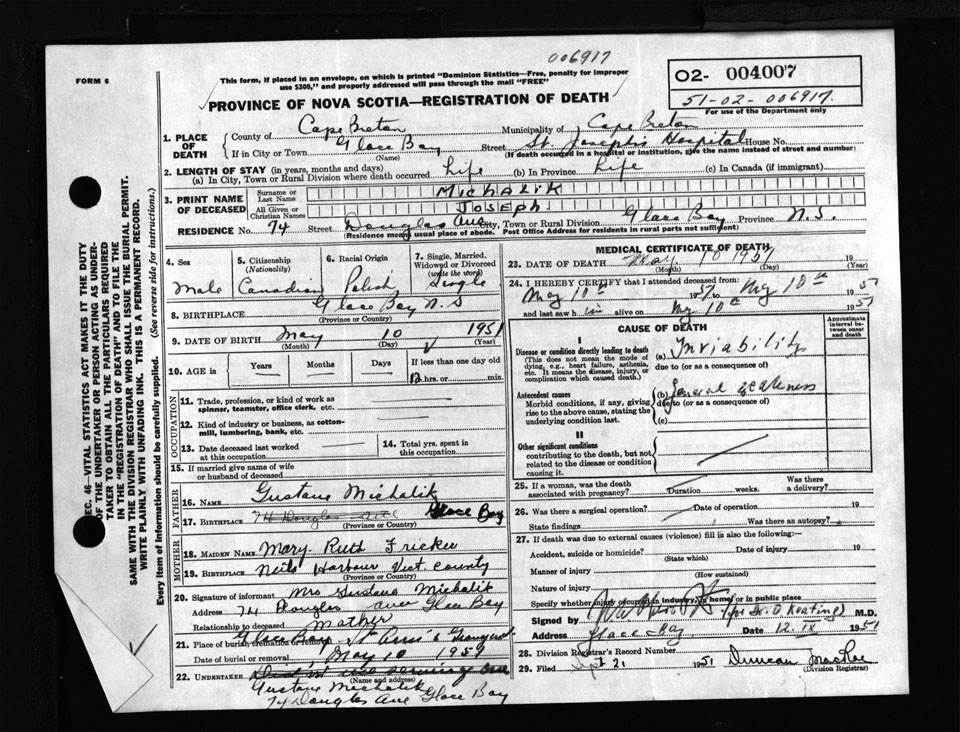 006917
FORM 6
This form, if placed in an envelope, on which is printed "Dominion Statistics—Free, penalty for improper
use $300," and properly addressed will pass through the mail "FREE"
O2- 004007
51-02-006917.
For use of the Department only
PROVINCE OF NOVA SCOTIA—REGISTRATION OF DEATH
1. PLACE OF DEATH
County of Cape Breton Municipality of Cape Breton
If in City or Town Glace Bay Street St. Joseph's Hospital House No.
(Name) (If death occurred in a hospital or institution, give the name instead of street and number)
2. LENGTH OF STAY (in years, months and days)
(a) In City, Town or Rural Division where death occurred Life (b) In Province Life (c) In Canada (if immigrant)
3. PRINT NAME OF DECEASED
Surname or Last Name MICHALIK
All Given or Christian Names JOSEPH
RESIDENCE No. 74 Street Douglas Ave City, Town or Rural Division Glace Bay Province N.S.
(Residence means usual place of abode. Post Office Address for residents in rural parts not sufficient)
4. Sex Male
5. Citizenship (Nationality) Canadian
6. Racial Origin Polish
7. Single, Married, Widowed or Divorced (write the word) Single
8. BIRTHPLACE Glace Bay N.S
(Province or Country)
9. DATE OF BIRTH May 10 1951
(Month) (Day) (Year)
10. AGE in Years Months Days If less than one day old
hrs. or min.
OCCUPATION
11. Trade, profession, or kind of work as
spinner, teamster, office clerk, etc.
12. Kind of industry or business, as cotton-
mill, lumbering, bank, etc.
13. Date deceased last worked
at this occupation
14. Total yrs. spent in
this occupation
15. If married give name of wife
or husband of deceased
FATHER
16. NAME Gustave Michalik
17. BIRTHPLACE 74 Douglas Ave Glace Bay
(Province or Country)
MOTHER
18. MAIDEN NAME Mary Ruth Fricker
19. BIRTHPLACE Neils Harbour Vict. County
(Province or Country)
20. Signature of informant Mrs Gustave Michalik
Address 74 Douglas Ave Glace Bay
Relationship to deceased Mother
21. Place of burial, cremation or removal Glace Bay St Ann's
Date of burial or removal May 10 1951
22. UNDERTAKER
(Name and address)
Gustave Michalik
74 Douglas Ave Glace Bay
MEDICAL CERTIFICATE OF DEATH
23. DATE OF DEATH May 10 1951 19
(Month) (Day)
24. I HEREBY CERTIFY that I attended deceased from:
May 10th 1951 to May 10th 1951
and last saw h im alive on May 10th 1951
CAUSE OF DEATH
Approximate interval between onset and death
I
Disease or condition directly leading to death
(This does not mean the mode of
dying, e.g., heart failure, asthenia,
etc. It means the disease, injury, or
complication which caused death.)
(a) Inviability
due to (or as a consequence of)
Antecedent causes
Morbid conditions, if any, giving
rise to the above cause, stating the
underlying condition last.
(b) General weakness
due to (or as a consequence of)
(c)
II
Other significant conditions
contributing to the death, but not
related to the disease or condition
causing it.
25. If a woman, was the death
associated with pregnancy? Duration weeks. Was there a delivery?
26. Was there a surgical operation? Date of operation 19
State findings Was there an autopsy?
27. If death was due to external causes (violence) fill in also the following:—
Accident, suicide or homicide? Date of injury 19
(State which)
Manner of injury
(How sustained)
Nature of injury
Specify whether injury occurred in industry, in home, or in public place
Signed by (for Dr. D Keating) M.D.
Address Glace Bay Date 12.IX 1951
28. Division Registrar's Record Number
29. Filed Sept 21 1951 Duncan MacRae
(Division Registrar)
SEC. 46—VITAL STATISTICS ACT MAKES IT THE DUTY
OF THE UNDERTAKER OR PERSON ACTING AS UNDER-
TAKER TO OBTAIN ALL THE PARTICULARS REQUIRED
IN THE "REGISTRATION OF DEATH" AND TO FILE THE
SAME WITH THE DIVISION REGISTRAR WHO SHALL ISSUE THE BURIAL PERMIT.
WRITE PLAINLY WITH UNFADING INK. THIS IS A PERMANENT RECORD.
Every item of Information should be carefully supplied. (See reverse side for instructions.)